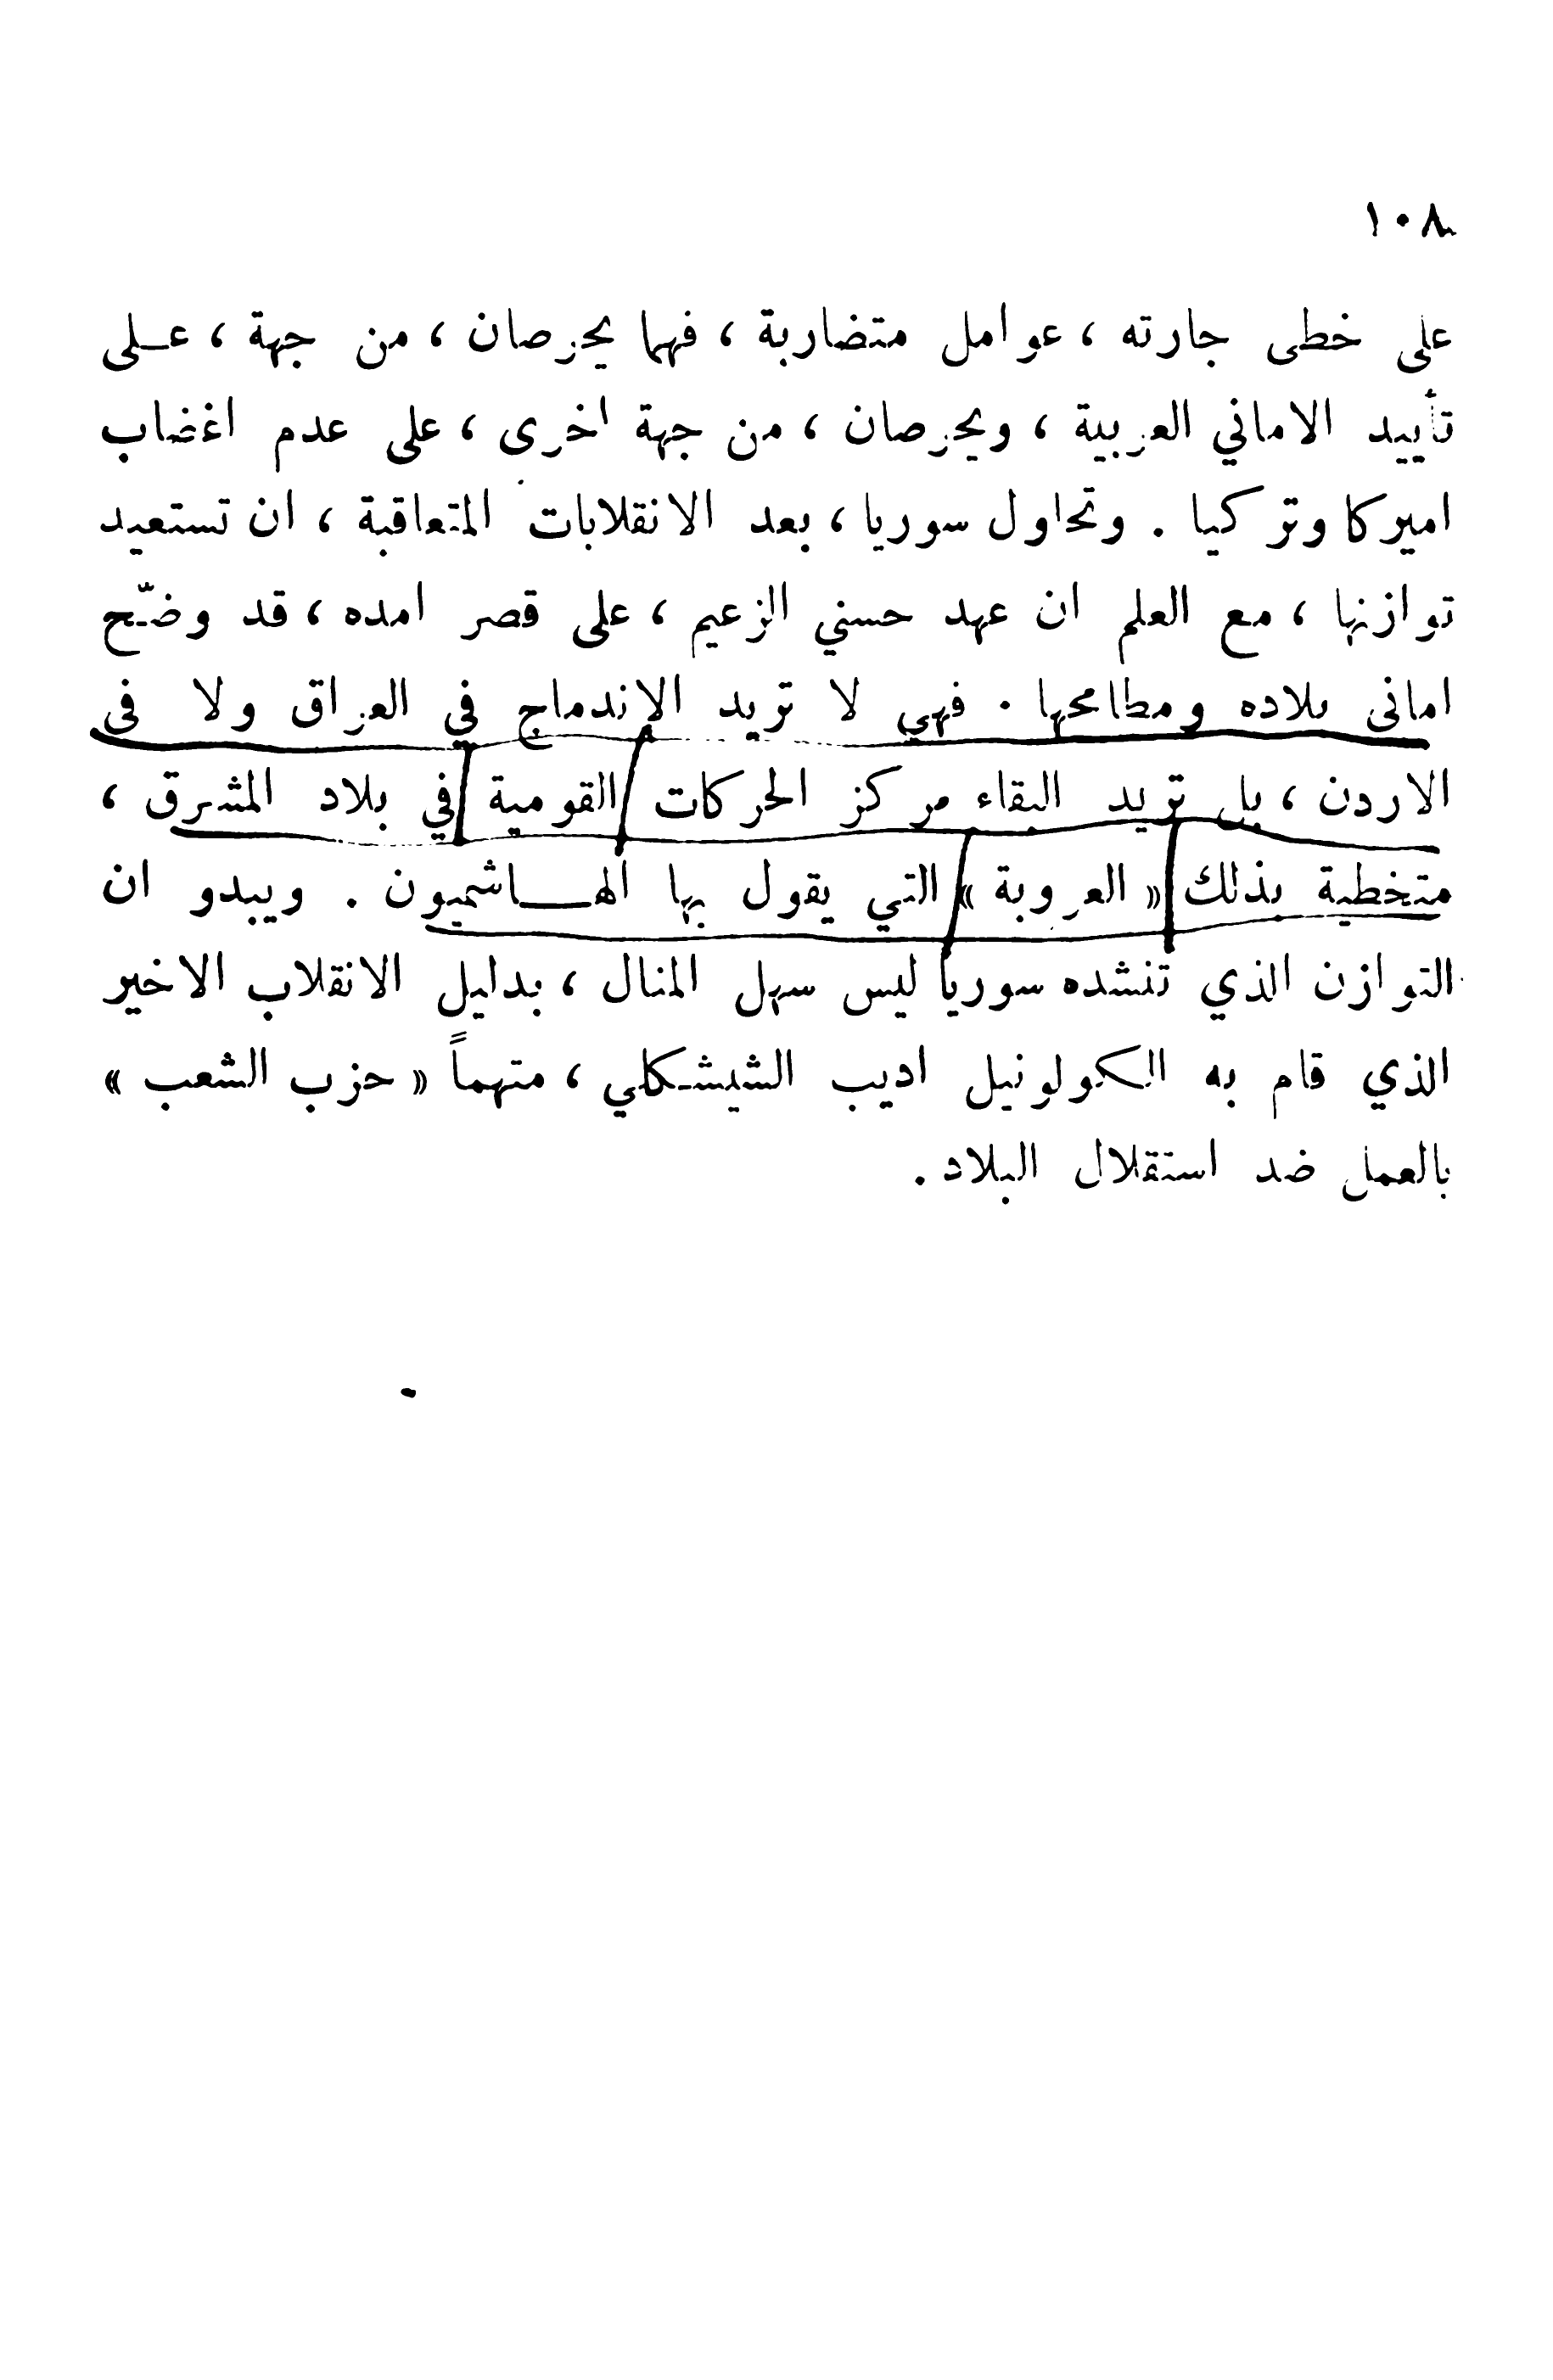 ١٠٨
على خطى جارته ، عوامل متضاربة ، فهما يحرصان ، من جهة ، عـلى
تأييد الاماني العربية ، ويحرصان ، من جهة اخرى ، على عدم اغضاب
اميركا وتركيا . وتحاول سوريا ، بعد الانقلابات المتعاقبة ، ان تستعيد
توازنها ، مع العلم ان عهد حسني الزعيم ، على قصر امده ، قد وضّح
اماني بلاده ومطامحها . فهي لا تريد الاندماج في العراق ولا في
الاردن ، بل تريد البقاء مركز الحركات القومية في بلاد المشرق ،
متخطية بذلك « العروبة » التي يقول بها الهـــاشميون . ويبدو ان
التوازن الذي تنشده سوريا ليس سهل المنال ، بدليل الانقلاب الاخير
الذي قام به الكولونيل اديب الشيشكلي ، متهماً « حزب الشعب »
بالعمل ضد استقلال البلاد .